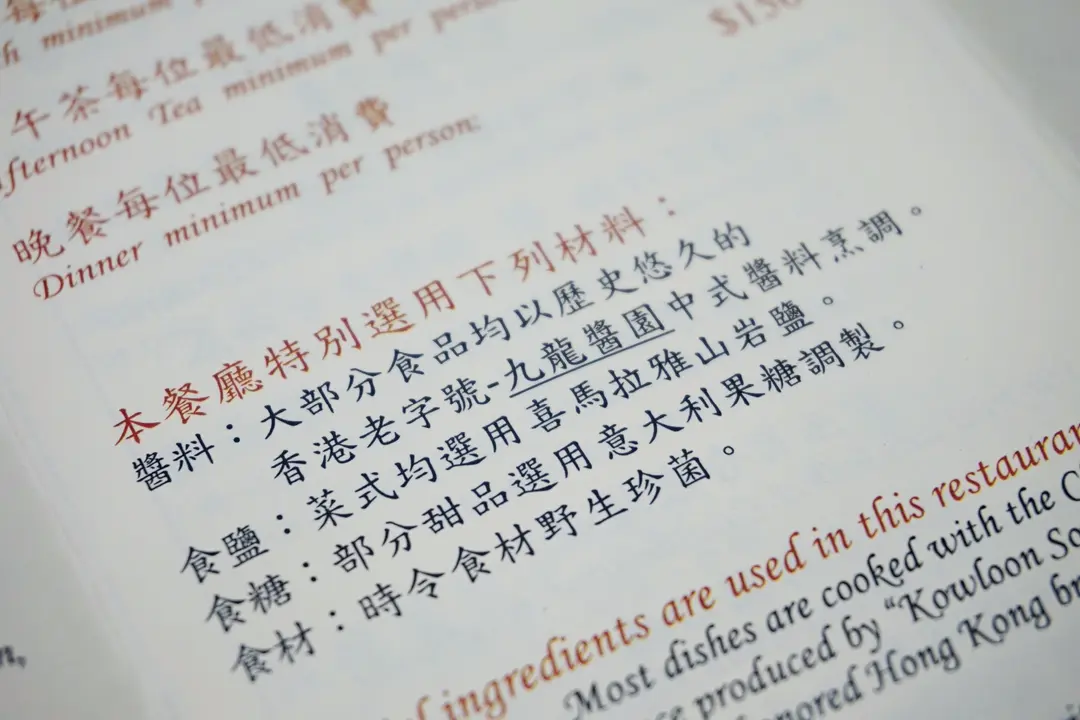 每位最低消費
minimum
午茶每位最低消費
Afternoon Tea minimum per person:
晚餐每位最低消費
Dinner minimum per person:
本餐廳特別選用下列材料：
醬料：大部分食品均以歷史悠久的
香港老字號-九龍醬園中式醬料烹調。
食鹽：菜式均選用喜馬拉雅山岩鹽。
食糖：部分甜品選用意大利果糖調製。
食材：時令食材野生珍菌。
ingredients are used in this restaurant
Most dishes are cooked with the
produced by “Kowloon
Hong Kong